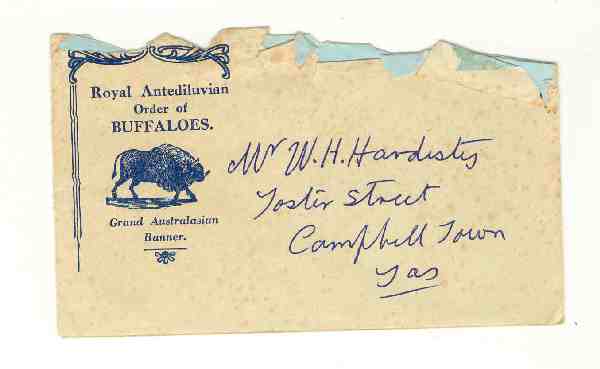 Royal Antediluvian
Order of
BUFFALOES.
Grand Australasian
Banner.
Mr W.H. Hardisty
Foster Street
Campbell Town
Tas